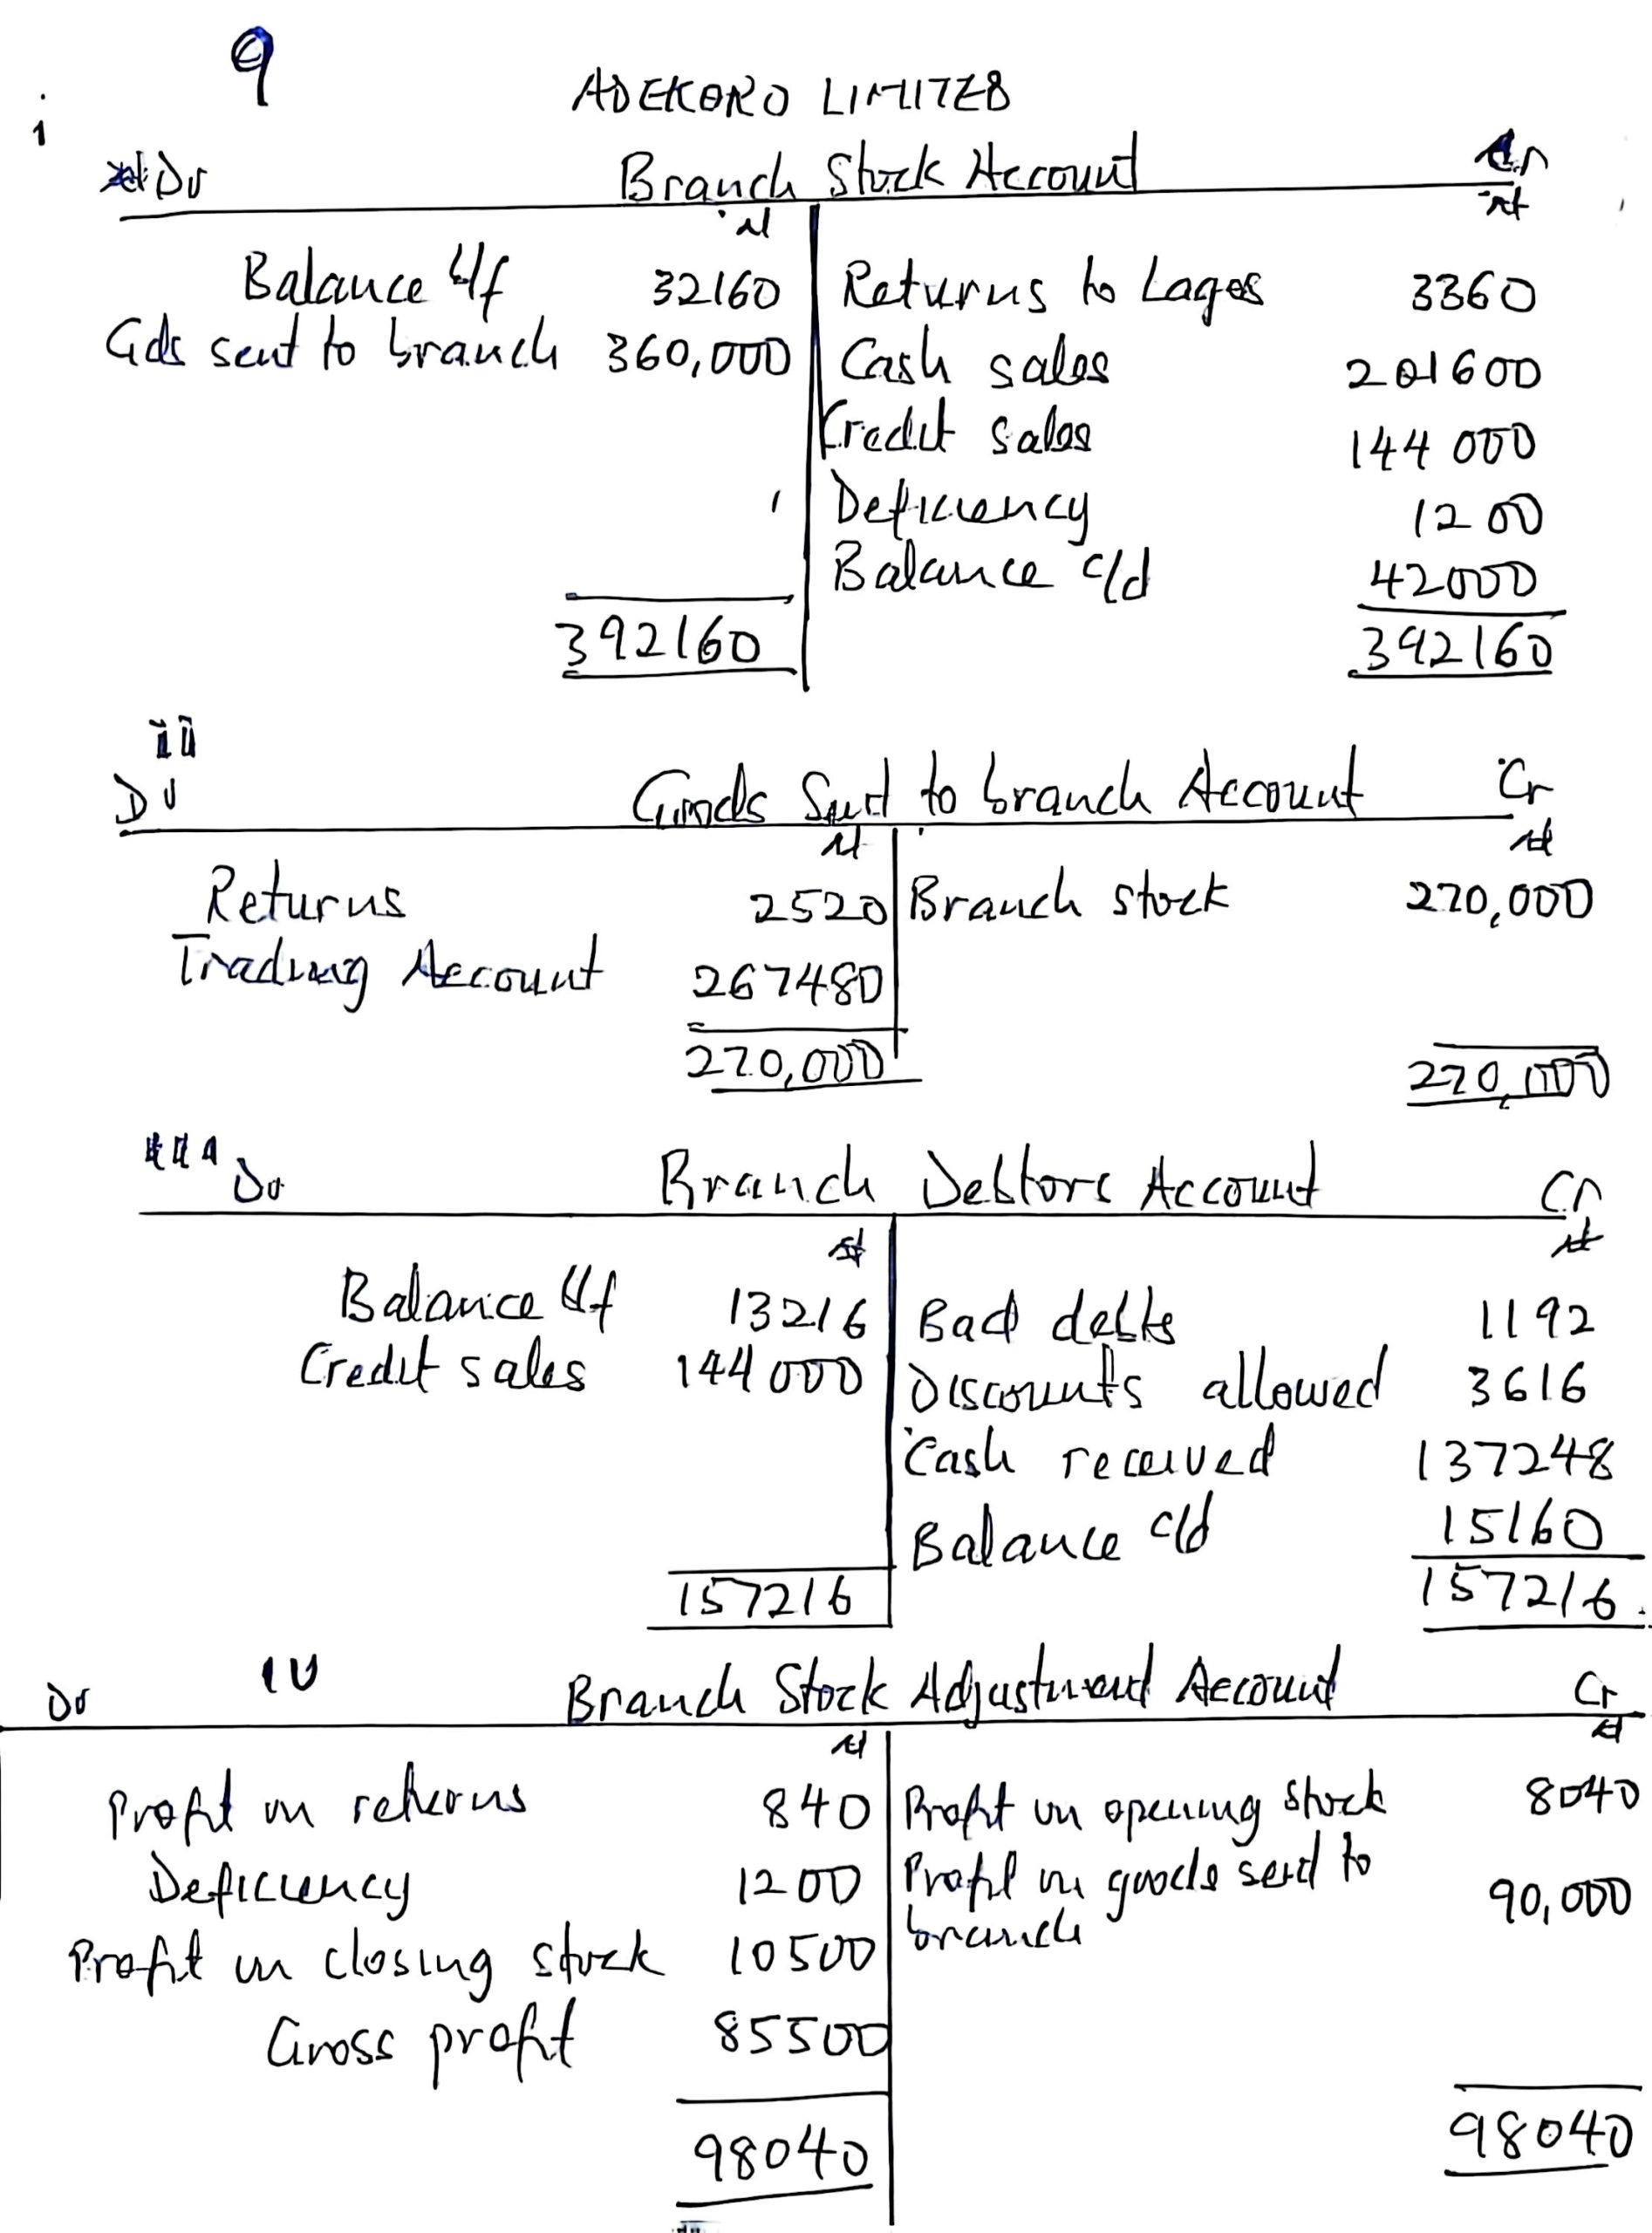 9
ADEKORO LIMITED
i
Dr Branch Stock Account Cr
₦ ₦
Balance b/f 32160 Returns to Lagos 3360
Gds sent to branch 360,000 Cash sales 201600
Credit sales 144 000
Deficiency 1200
Balance c/d 42000
392160 392160
ii
Dr Goods Sent to branch Account Cr
₦ ₦
Returns 2520 Branch stock 270,000
Trading Account 267480
270,000 270,000
iii
Dr Branch Debtors Account Cr
₦ ₦
Balance b/f 13216 Bad debts 1192
Credit sales 144000 Discounts allowed 3616
Cash received 137248
Balance c/d 15160
157216 157216
iv
Dr Branch Stock Adjustment Account Cr
₦ ₦
Profit on returns 840 Profit on opening stock 8040
Deficiency 1200 Profit on goods sent to
branch 90,000
Profit on closing stock 10500
Gross profit 85500
98040 98040